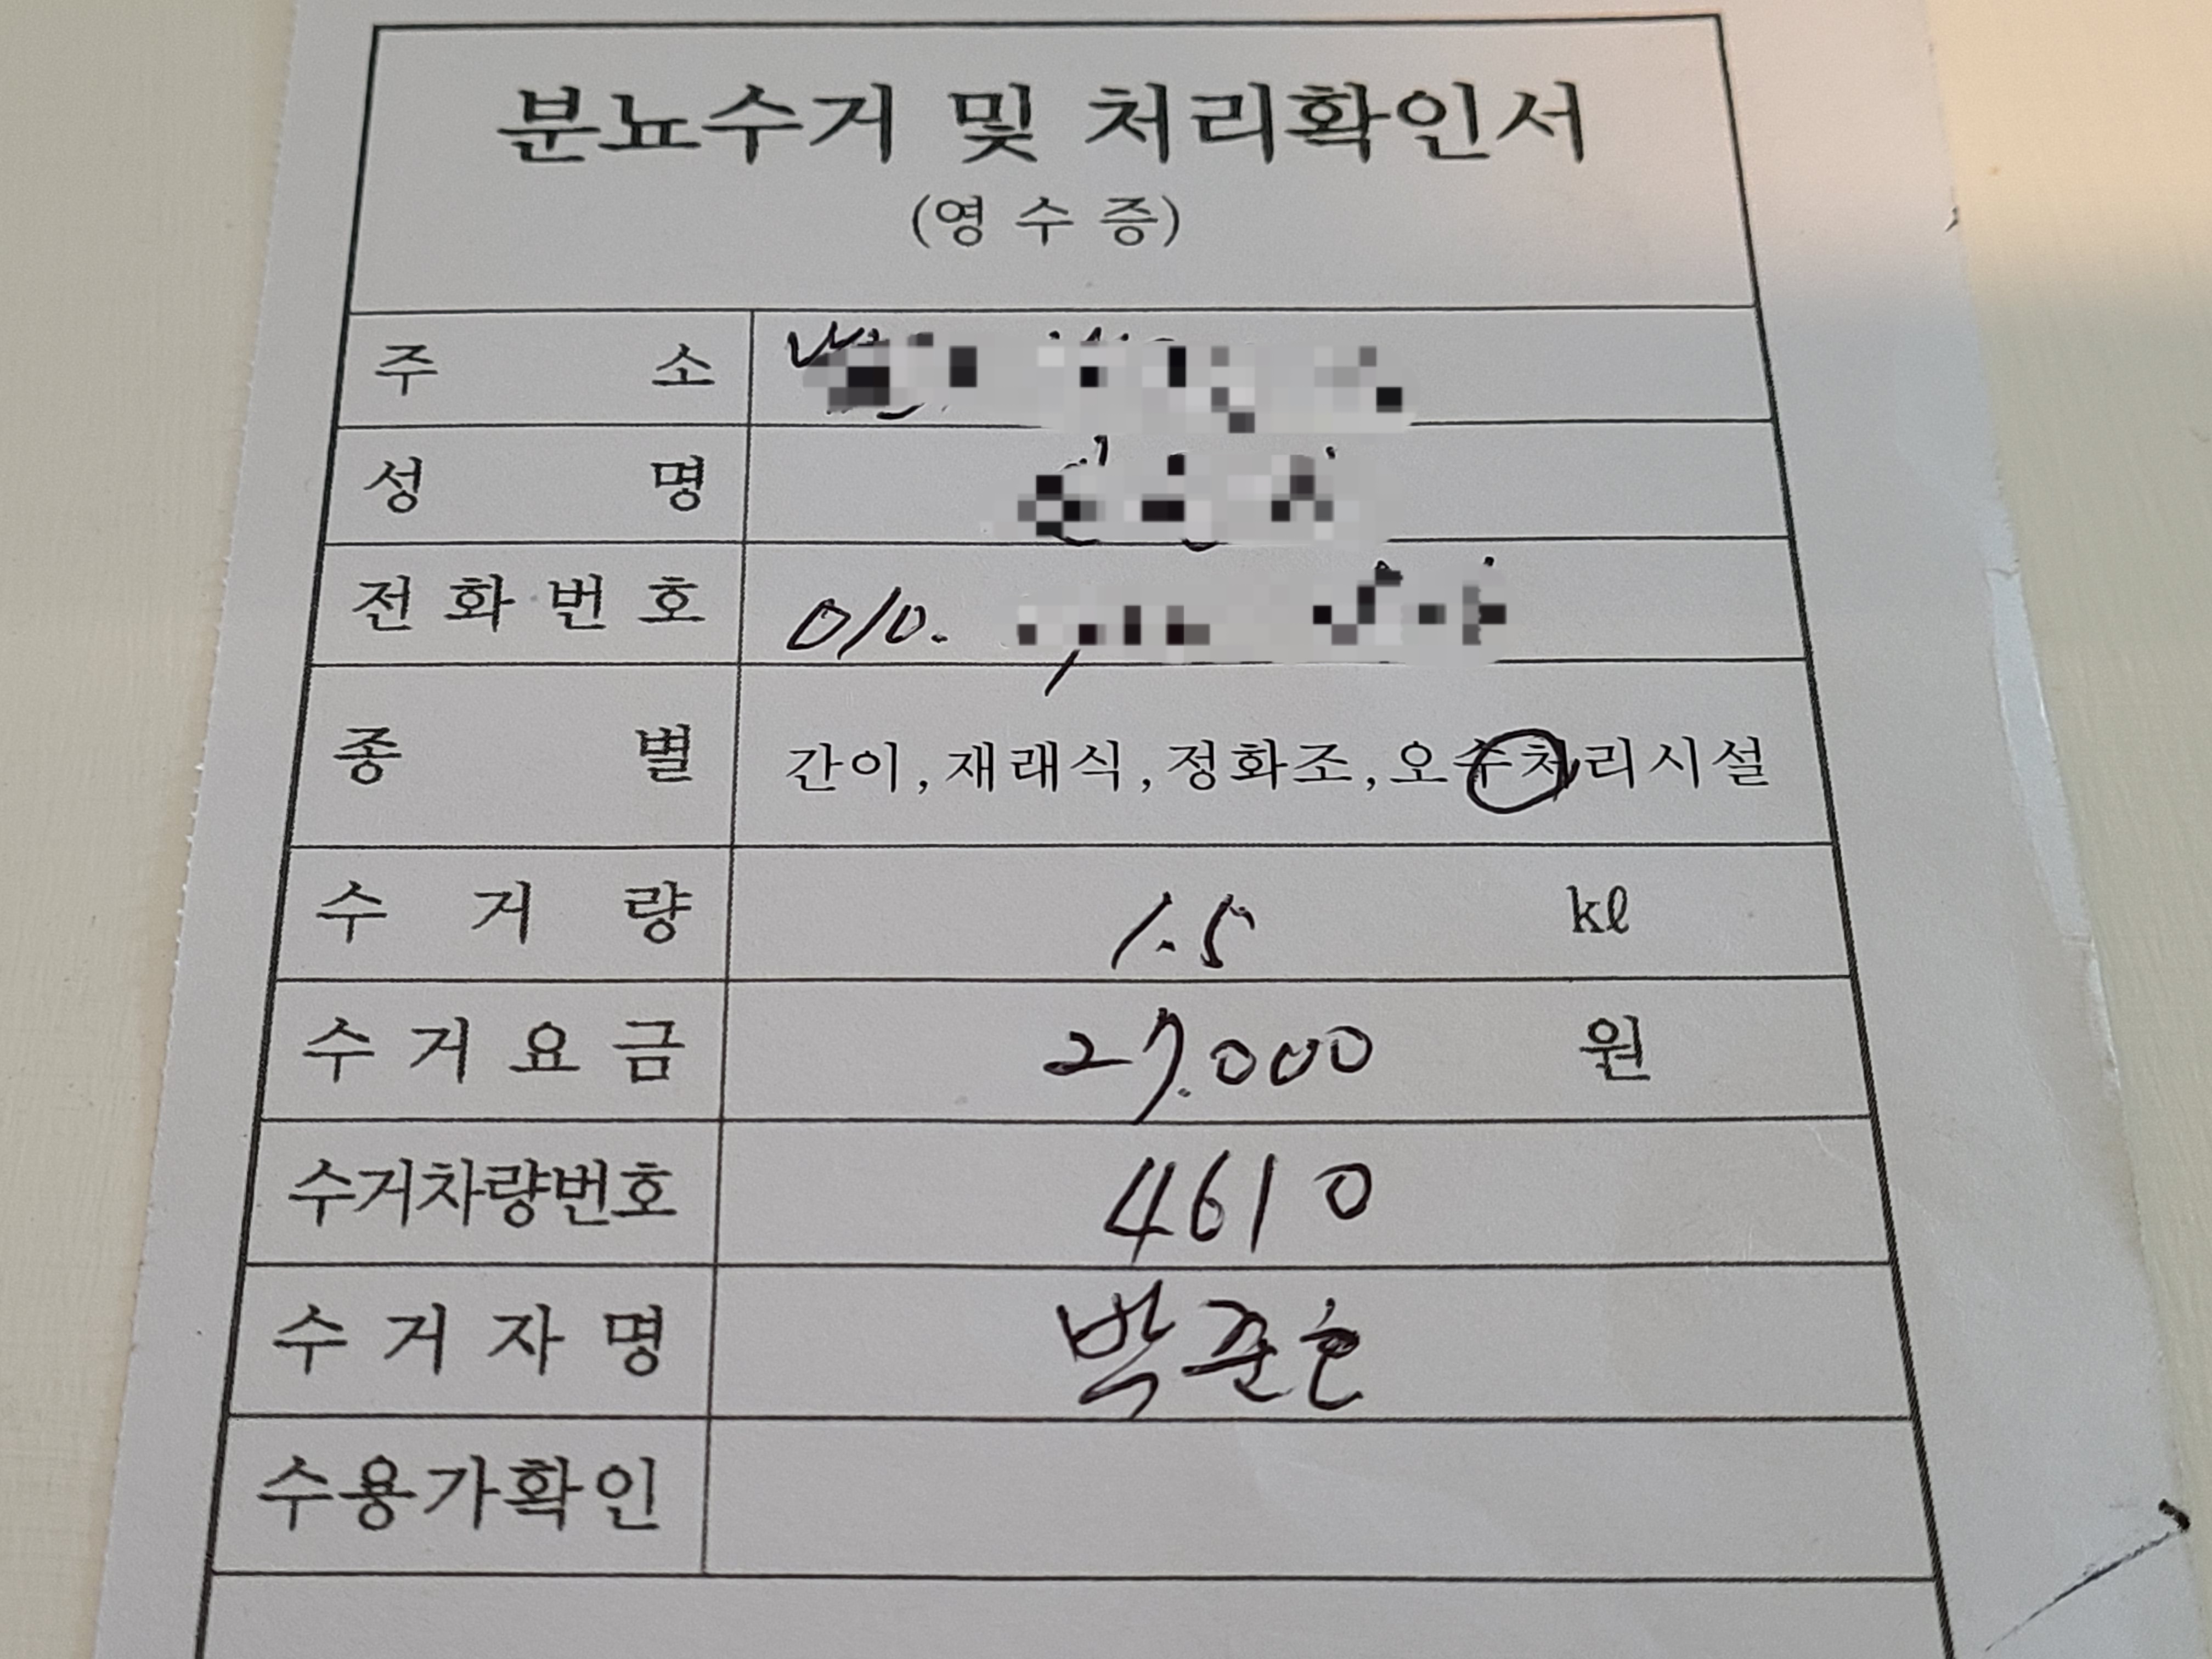 분뇨수거 및 처리확인서
(영수증)
주 소
성 명
전화번호 010.
종 별 간이, 재래식, 정화조, 오수처리시설
수거량 1.5 kℓ
수거요금 27.000 원
수거차량번호 4610
수거자명 박준호
수용가확인